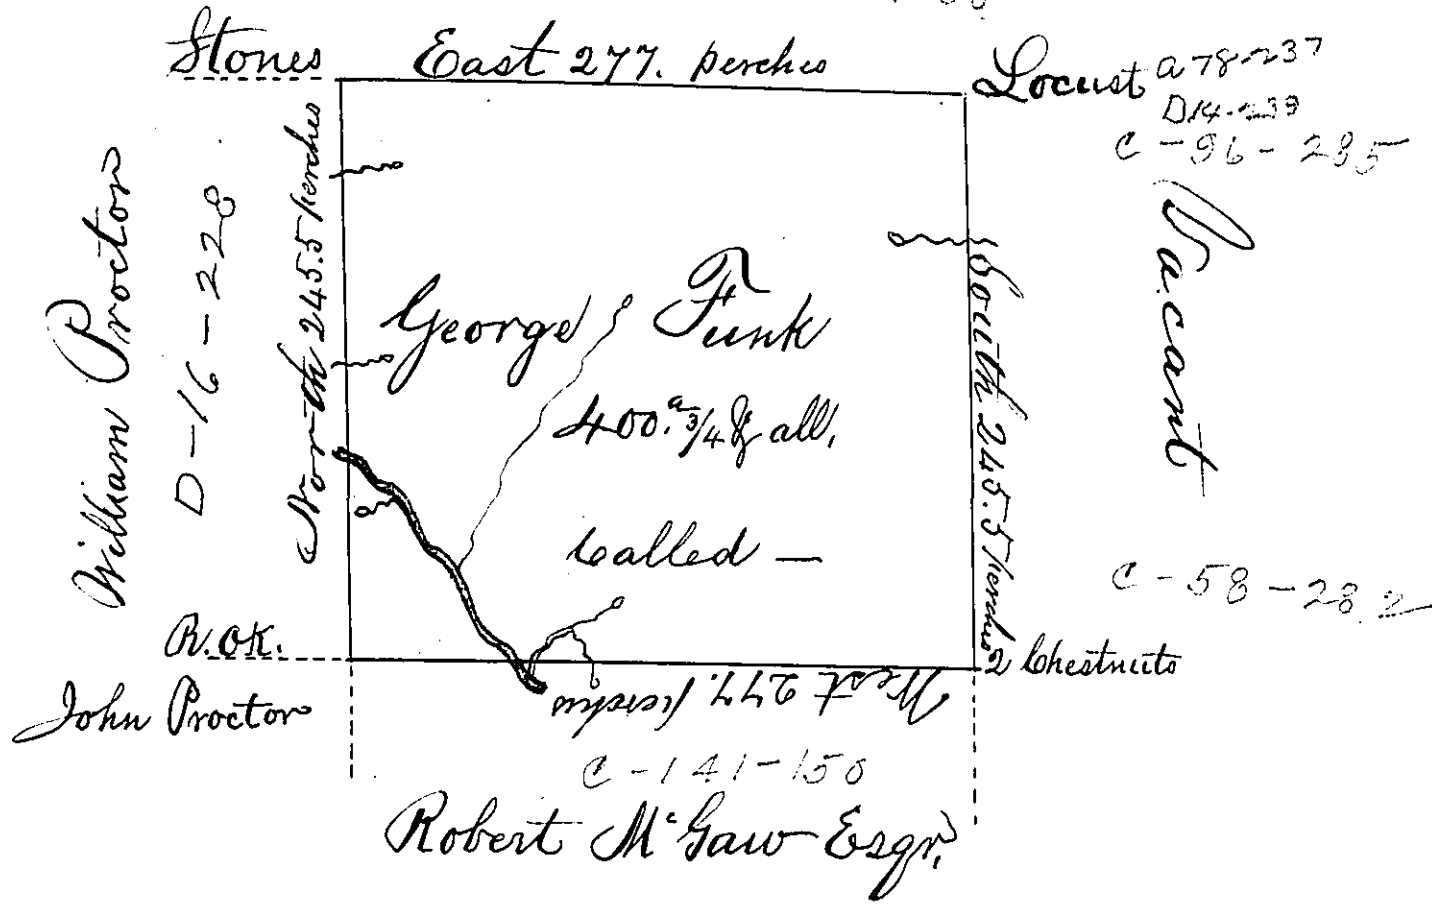 Stones
East 277. perches
Locust
a78-237
D14-239
C-96-285
William Proctor
D-16-228
North 245.5 perches
George Funk
400.a 3/4 & all.
Called —
South 245.5 perches
Vacant
C-58-282
R.OK.
2 Chestnuts
John Proctor
West 277. perches
C-141-150
Robert McGaw Esqr.